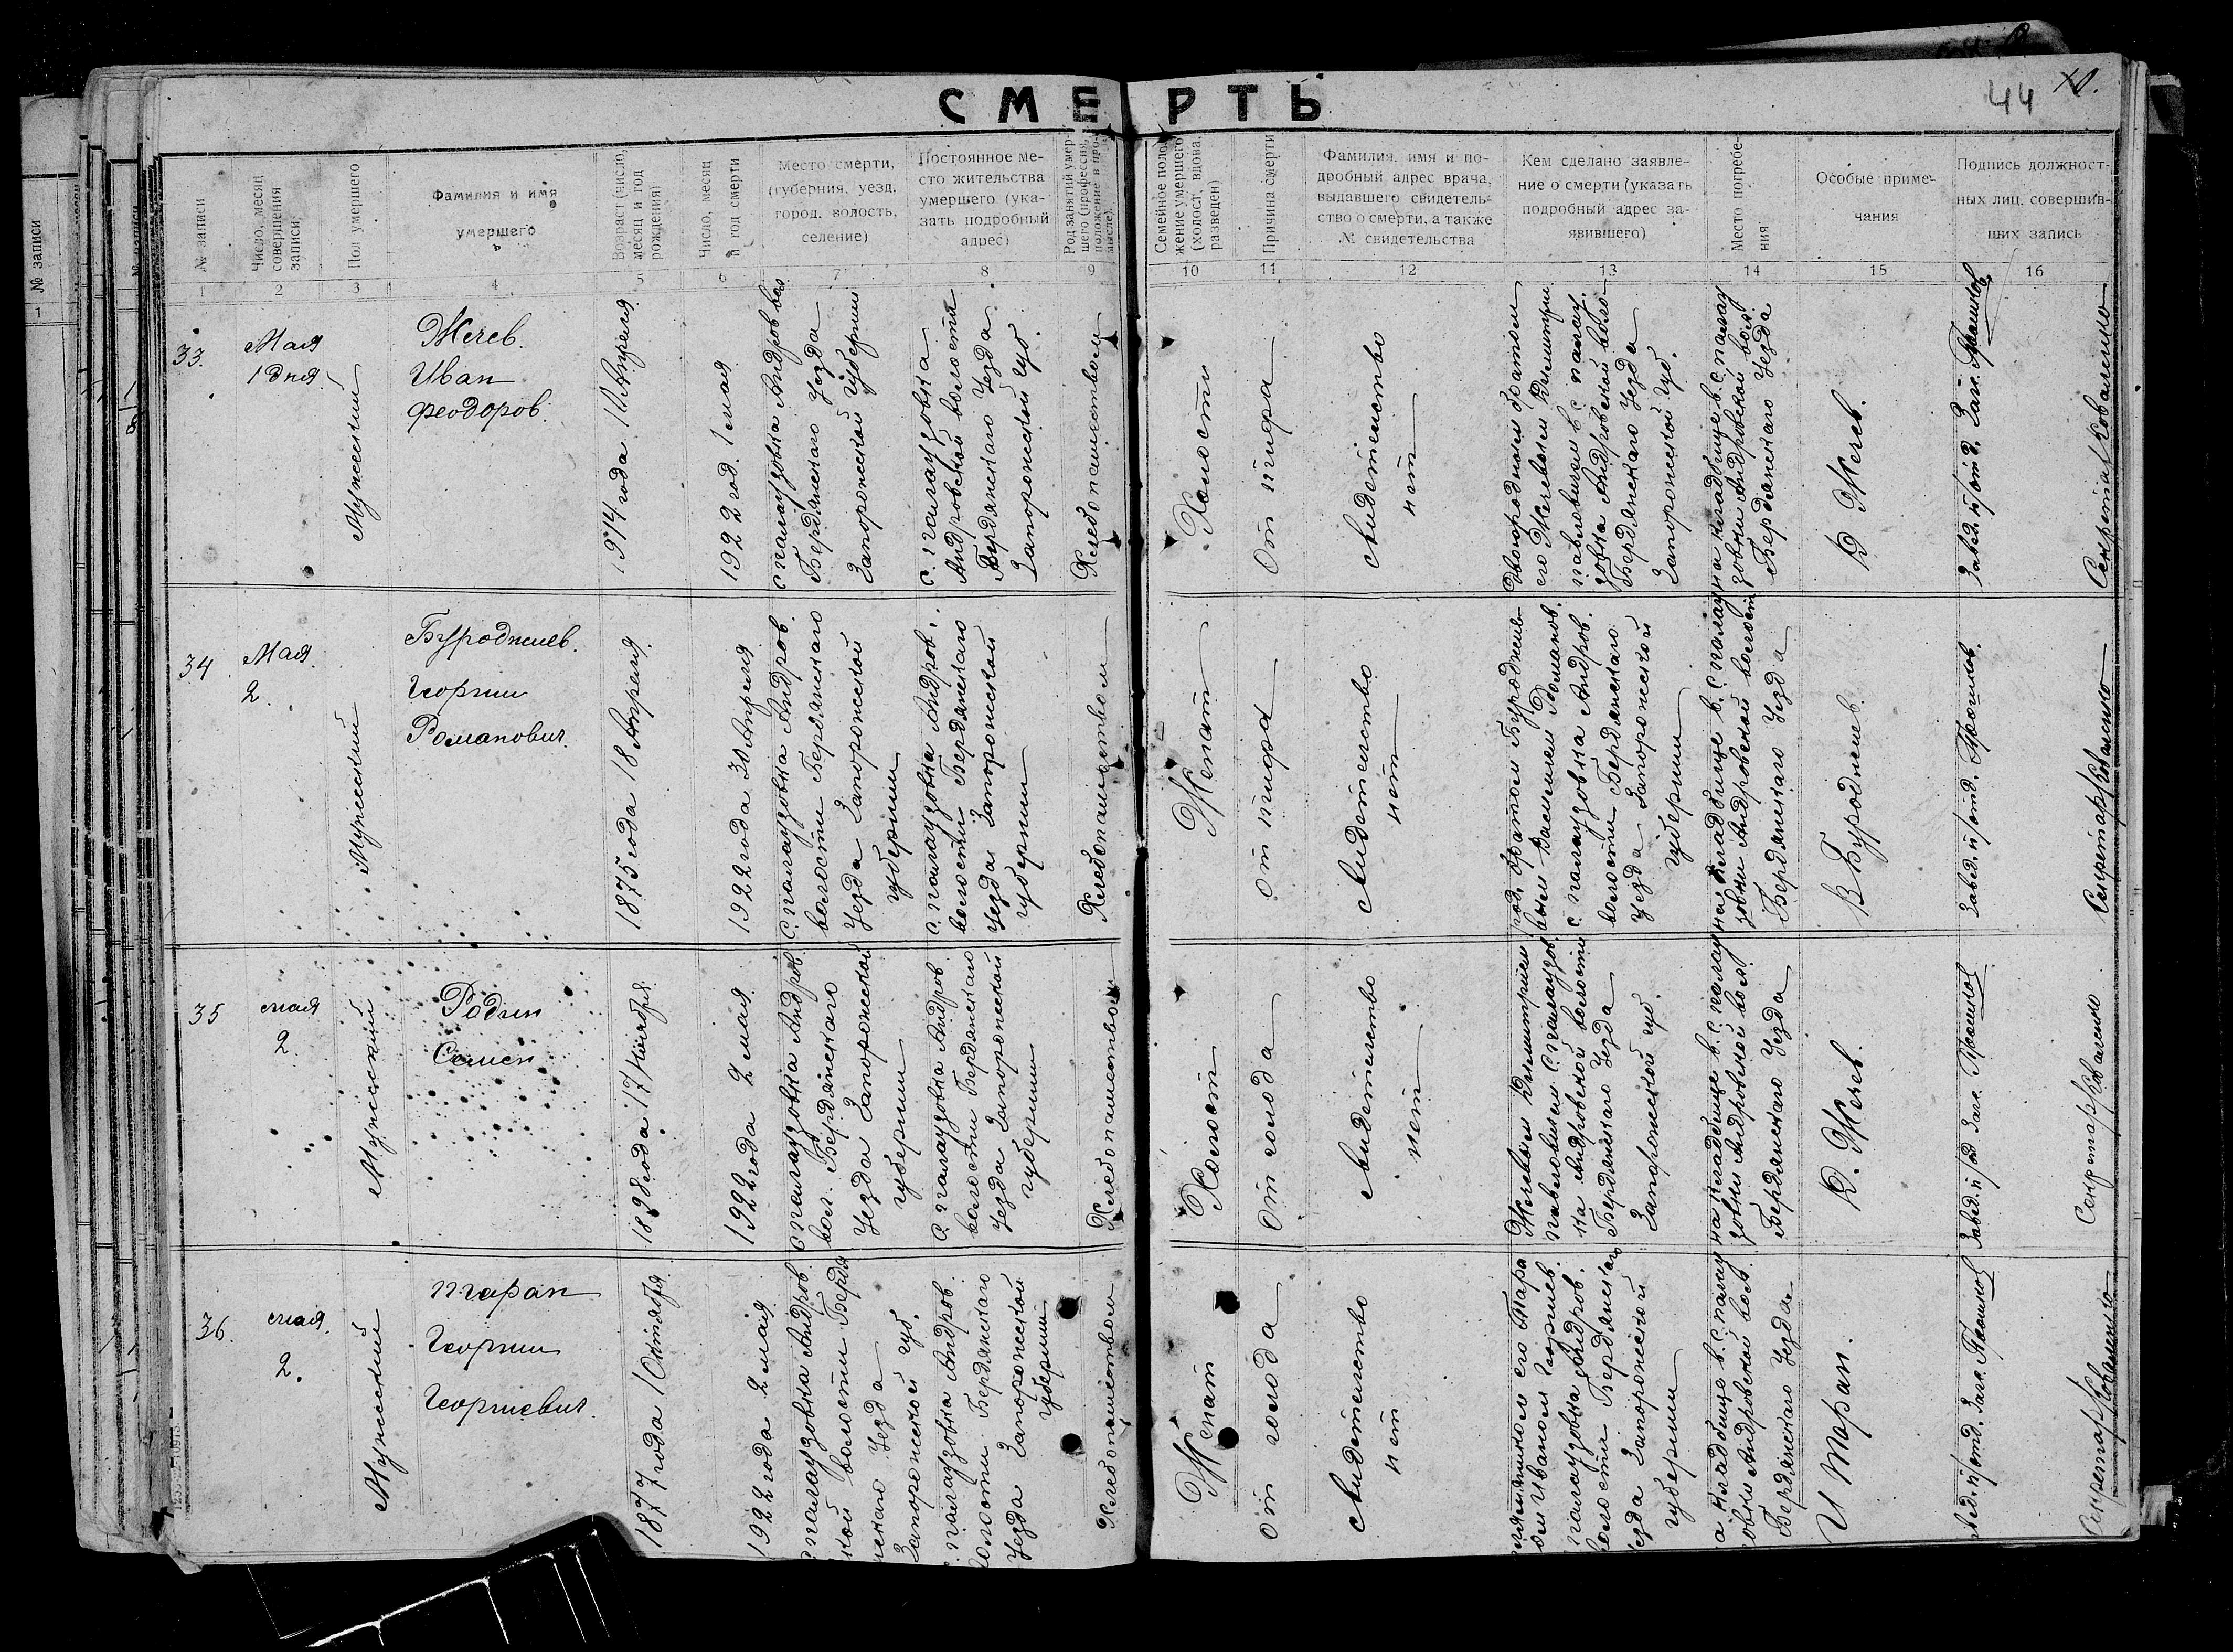 СМЕРТЬ
44
№ записи
1
№ записи
Число, месяц
совершения
записи
Пол умершего
Фамилия и имя
умершего
Возраст (число,
месяц и год
рождения)
Число, месяц
и год смерти
Место смерти,
(губерния, уезд,
город, волость,
селение)
Постоянное ме-
сто жительства
умершего (ука-
зать подробный
адрес)
Род занятий умер-
шего (профессия,
положение в про-
мысле).
Семейное поло-
жение умершего
(холост, вдова,
разведен)
Причина смерти
Фамилия, имя и по-
дробный адрес врача,
выдавшего свидетель-
ство о смерти, а также
№ свидетельства
Кем сделано заявле-
ние о смерти (указать
подробный адрес за-
явившего)
Место погребе-
ния
Особые приме-
чания
Подпись должност-
ных лиц, совершив-
ших запись
1 2 3 4 5 6 7 8 9 10 11 12 13 14 15 16
33.
Мая
1 дня.
Мужеский
Жечев.
Иван
Феодоров.
1914 года 10 Апреля
1922 год. 1 мая
с. Палаузовка Андровс вол
Бердянскаго Уезда
Запорожской Губернии
с. Палаузовка
Андровской волости
Бердянскаго Уезда
Запорожской губ.
Хлебопашеством
Холост
От тифа
Свидетельство
нет
Двоюродным братом
его Жечевым Димитрием
Павловичем в с Палау
зовка Андровской воло
Бердянскаго Уезда
Запорожской губ.
на кладбище в с. Палау
зовки Андровской вол.
Бердянскаго Уезда
Д Жечев.
Секретарь Коваленко
34
Мая.
2.
Мужеский
Буроджиев.
Георгий
Романович.
1875 года 18 Апреля.
1922 года 30 Апреля
с. Палаузовка Андров.
волости Бердянскаго
Уезда Запорожской
губернии
с. Палаузовка Андров.
волости Бердянскаго
Уезда Запорожской
губернии
Хлебопашеством
Женат
От тифа
Свидетельство
нет
род. братом Буроджие-
вым Василием Романов.
с Палаузовка Андров.
волости Бердянскаго
Уезда Запорожской
губернии
на кладбище в. с Палау
зовки Андровской волости
Бердянскаго Уезда
В Буроджиев.
Секретарь Коваленко
35
мая
2.
Мужеский
Родин
Семен
1898 года 17 Ноября
1922 года 2 мая.
с Палаузовка Андров.
вол. Бердянскаго
Уезда Запорожской
губернии
с. Палаузовка Андров.
волости Бердянскаго
Уезда Запорожской
губернии
Хлебопашеством
Холост
От голода
Свидетельство
нет
Жечевым Димитрием
Павловичем с Палаузов
ка Андровской волости
Бердянскаго Уезда
Запорожской губ.
на кладбище в с. Палау
зовки Андровской вол.
Бердянскаго Уезда
Д. Жечев.
Секретарь Коваленко
36.
мая.
2.
Мужеский
Таран
Георгий
Георгиевич.
1877 года 10 октября
1922 года 2 мая
с. Палаузовка Андров.
ской волости Бердя
нскаго Уезда
Запорожской губ.
с. Палаузовка Андров.
волости Бердянскаго
Уезда Запорожской
губернии
Хлебопашеством
Женат
От голода
Свидетельство
нет
племянником его Тара
ном Иваном Георгиев.
Палаузовка Андров.
волости Бердянскаго
Уезда Запорожской
губернии
на кладбище в. с Палау
зовки Андровской вол.
Бердянскаго Уезда
И Таран.
Секретарь Коваленко